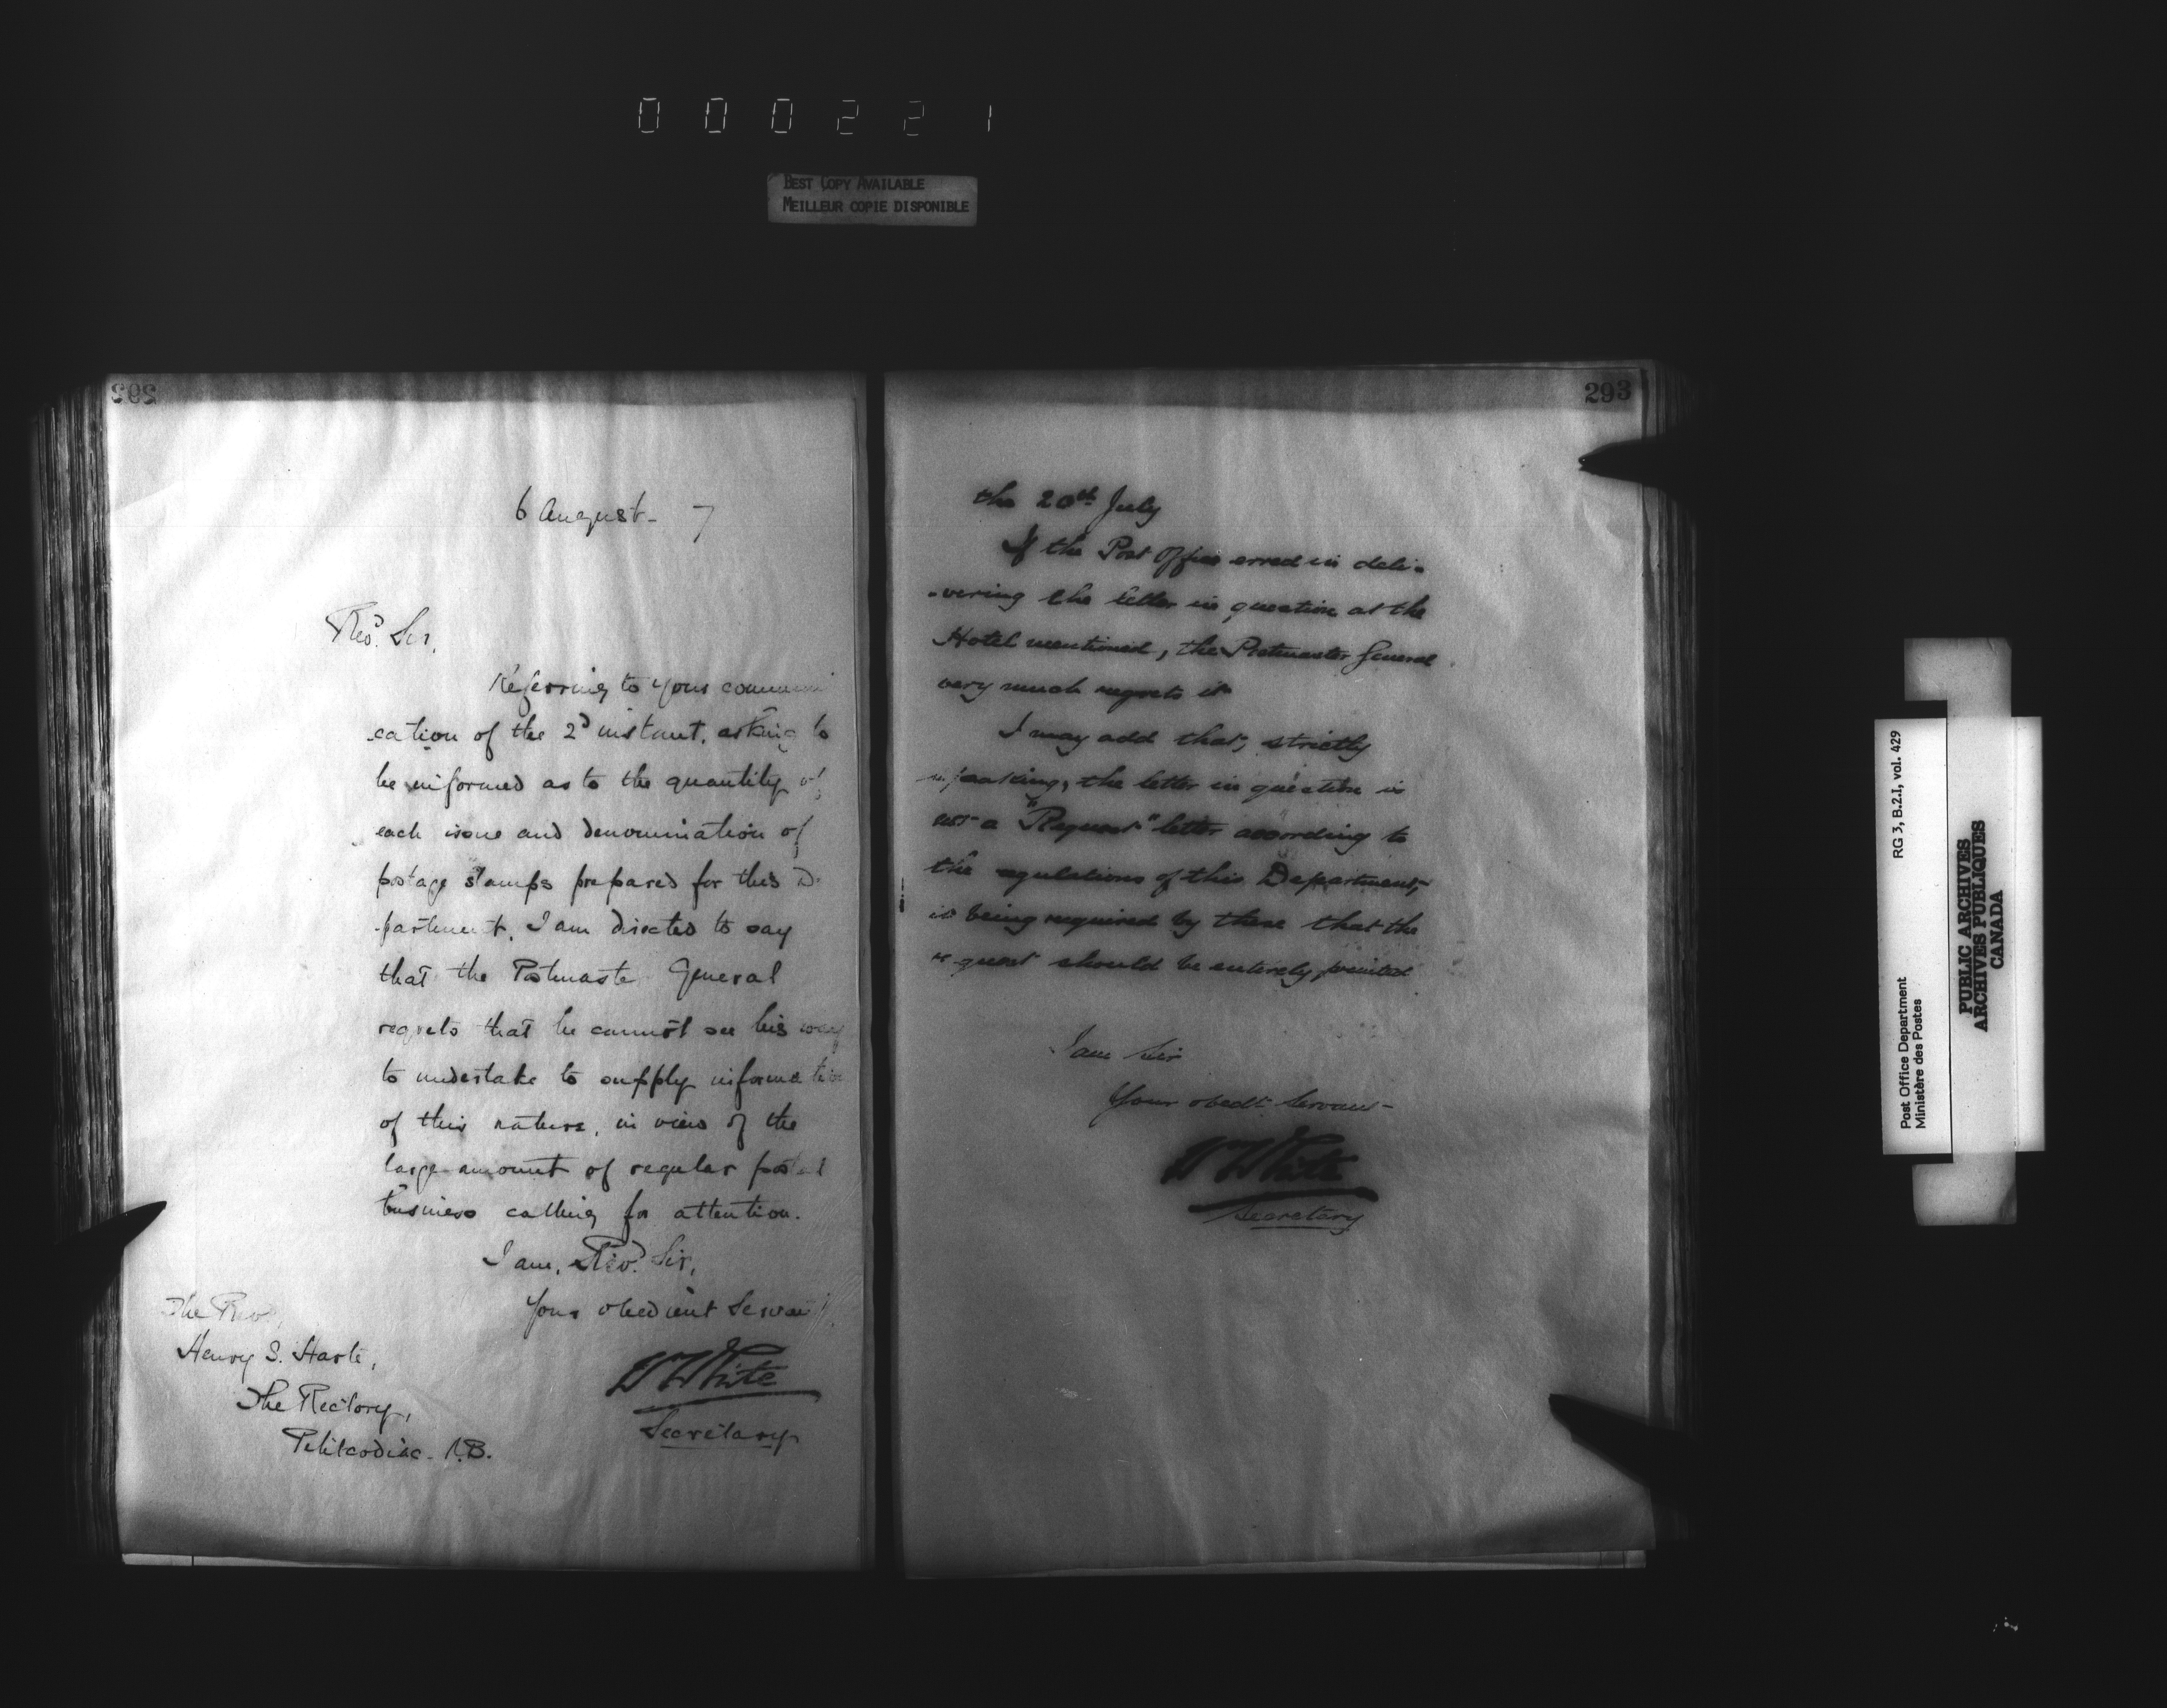 000221
BEST COPY AVAILABLE
MEILLEUR COPIE DISPONIBLE
292
6 August 7
Revd. Sir,
Referring to your communi
cation of the 2d instant, asking to
be informed as to the quantity of
each issue and denomination of
postage stamps prepared for this De
partment, I am directed to say
that the Postmaster General
regrets that he cannot see his way
to undertake to supply information
of this nature, in view of the
large amount of regular postal
business calling for attention.
I am, Revd. Sir,
Your obedient Servant,
W White
Secretary
The Revd.
Henry S. Harte,
The Rectory,
Petitcodiac. N.B.
293
the 20th July
If the Post Office erred in deli-
-vering the letter in question at the
Hotel mentioned, the Postmaster General
very much regrets it
I may add that, strictly
speaking, the letter in question is
not a "Request" letter according to
the regulations of this Department,
it being required by these that the
request should be entirely printed
I am Sir
Your obedt. Servant
W White
Secretary
RG 3, B.2.I, vol. 429
Post Office Department
Ministère des Postes
PUBLIC ARCHIVES
ARCHIVES PUBLIQUES
CANADA